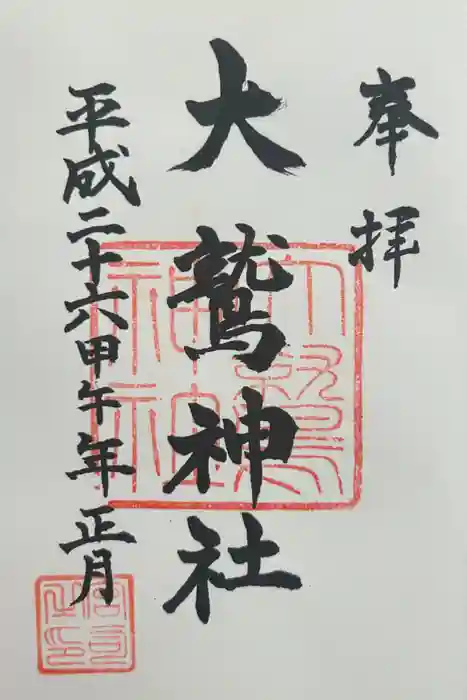 奉拝
大鷲神社
平成二十六甲午年正月